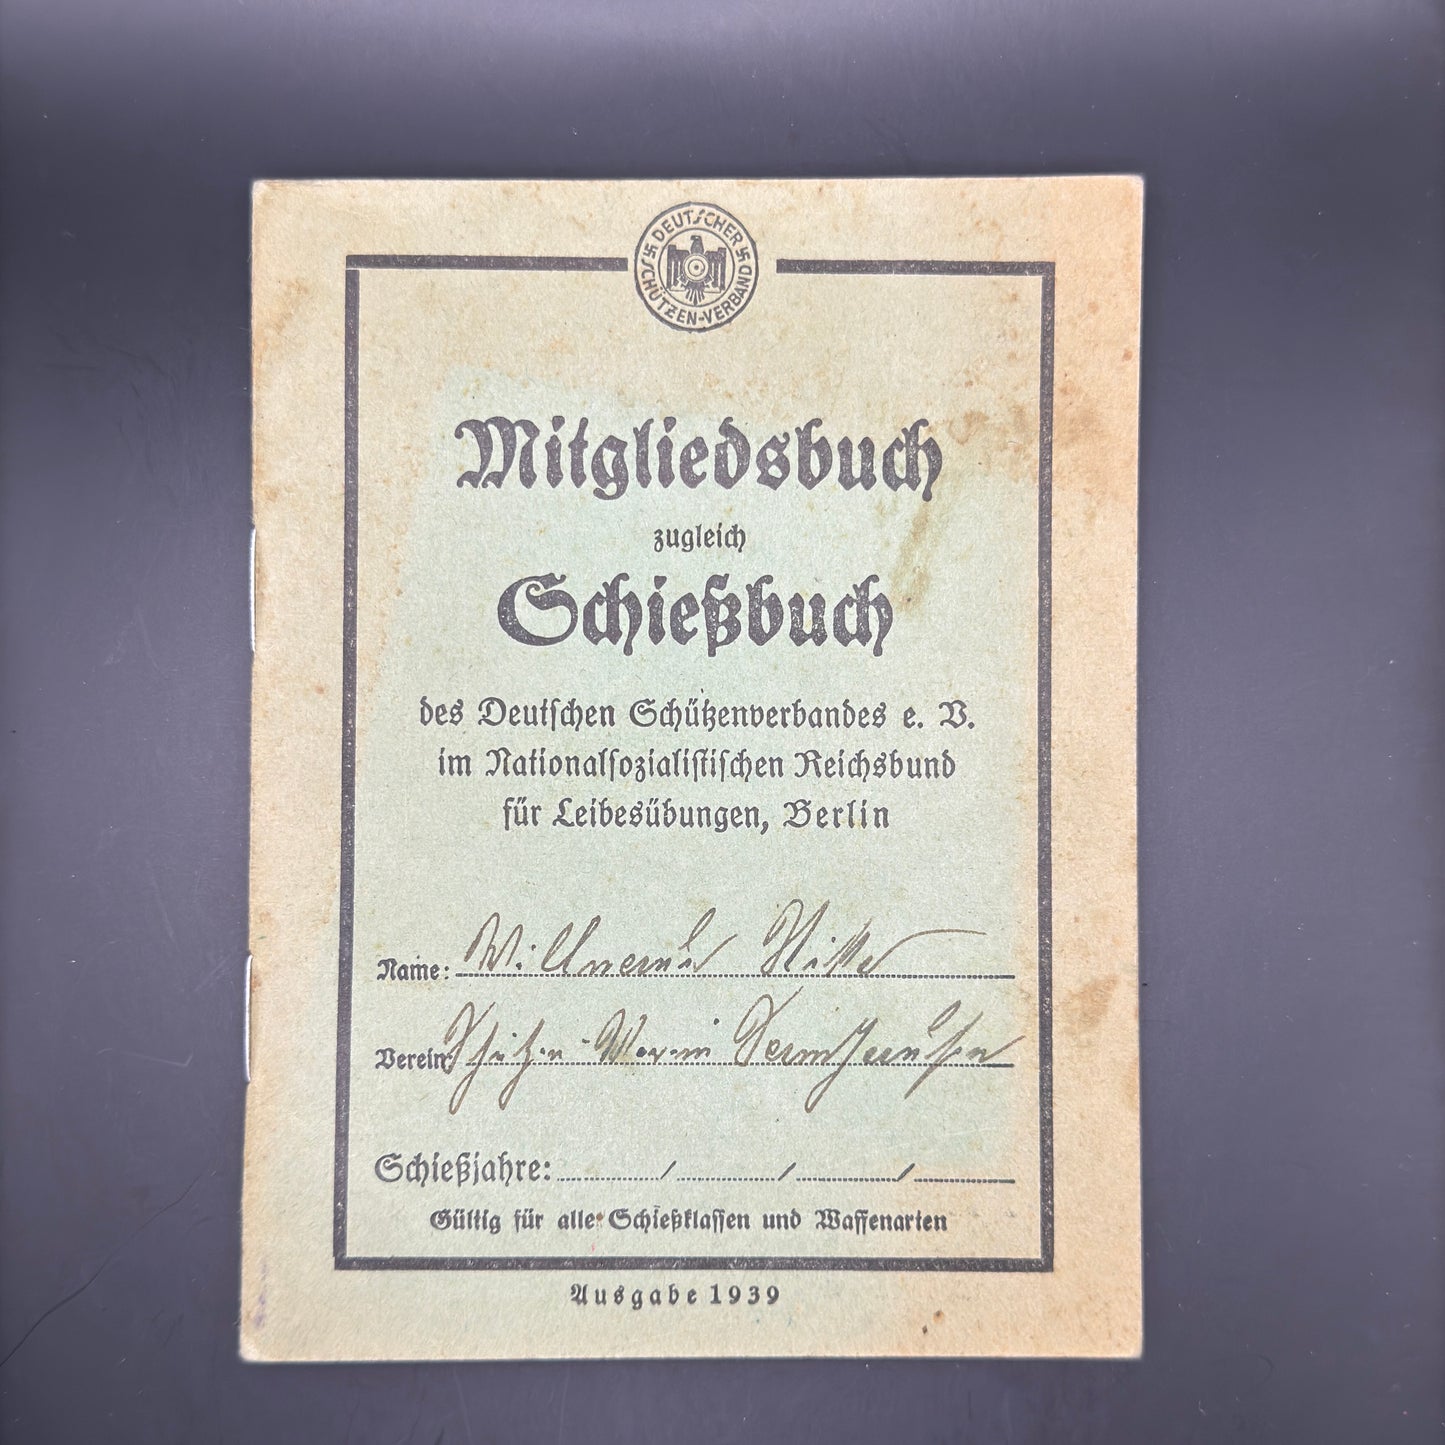 DEUTSCHER
SCHÜTZEN-VERBAND
Mitgliedsbuch
zugleich
Schießbuch
des Deutschen Schützenverbandes e. V.
im Nationalsozialistischen Reichsbund
für Leibesübungen, Berlin
Name:
Verein:
Schießjahre: / / /
Gültig für alle Schießklassen und Waffenarten
Ausgabe 1939